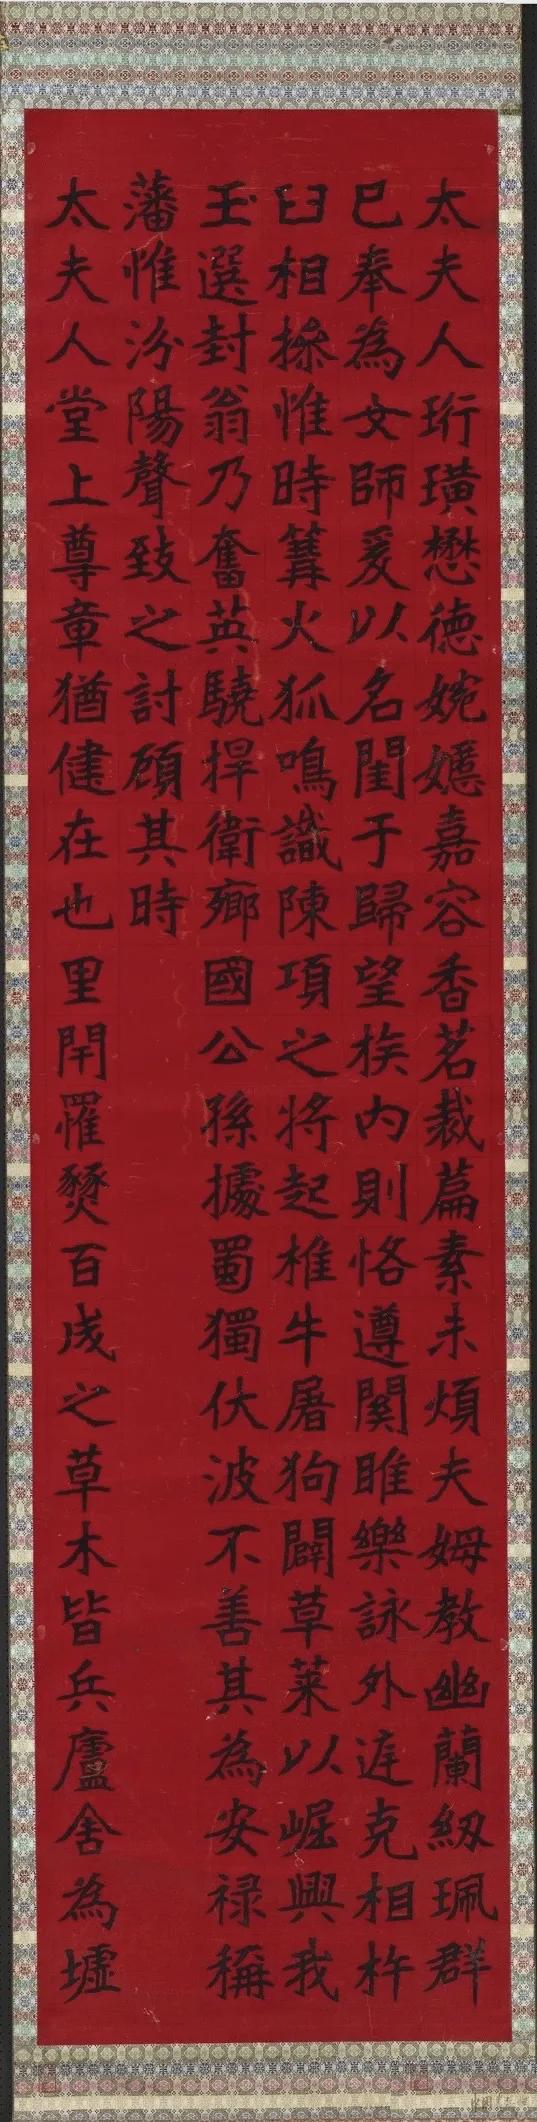 太夫人珩璜懋德婉嫕嘉容香茗裁篇素未煩夫姆教幽蘭紉珮群
已奉為女師爰以名閨于歸望族內則恪遵關雎樂詠外庭克相杵
臼相操惟時篝火狐鳴識陳項之將起椎牛屠狗闢草萊以崛興我
玉選封翁乃奮英驍捍衛鄉國公孫據蜀獨伏波不善其為安祿稱
藩惟汾陽聲致之討顧其時
太夫人堂上尊章猶健在也里閈罹燹百成之草木皆兵廬舍為墟